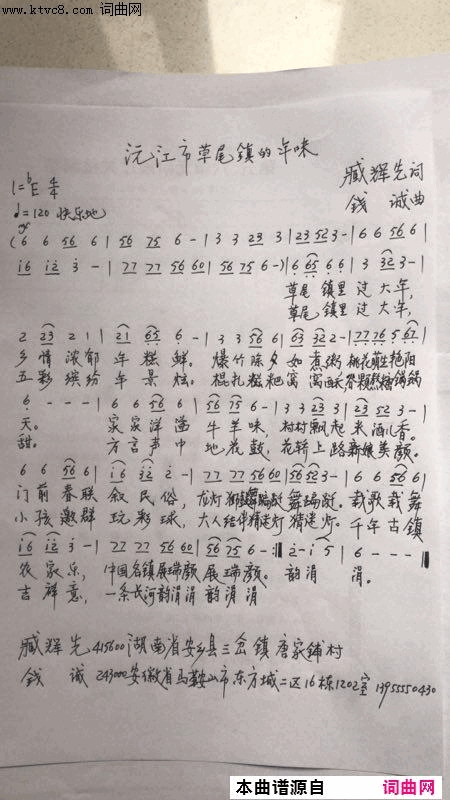 www.ktvc8.com 词曲网
沅江市草尾镇的年味
臧辉先词
1=bE 4/4
钱 诚曲
♩=120 快乐地
(6 6 56 6 | 56 75 6 - | 3 3 23 3 | 23 52 3 - | 6 6 56 6 |
i6 i2 3 - | 77 77 56 60 | 56 75 6 -) | 6 65 6 6 | 3 32 3 - |
草尾 镇里 过 大 年,
草尾 镇里 过 大 年,
2 23 2 1 | 21 65 6 - | 3 3 56 6 | 63 32 2 - | 77 76 5 67 |
乡 情 浓郁 年 糕 鲜。 爆竹 除夕 如 煮粥 桃花 艳阳
五彩 缤纷 年 景 糍粑 窝
6 - - - | 6 6 56 6 | 56 75 6 - | 3 3 23 3 | 23 52 3 - |
天。 家家 洋溢 牛羊味, 村村飘起 米酒香。
甜。 方言声中 地花鼓, 花轿上路新娘美颜。
6 6 56 6 | i6 32 2 - | 77 77 56 60 | 56 52 3 - | 6 6 56 6 |
门前 春联 叙民俗, 龙灯 舞蹁跹。 载歌载舞
小孩 邀群 玩彩球, 大人结伴猜谜灯 猜谜灯。 千年古镇
i6 i2 3 - | 77 77 56 60 | 56 75 6 - :‖ 2 - i 5 | 6 - - - ‖
农家乐, 中国名镇展瑞颜 展瑞颜。 韵涓 涓。
吉祥意, 一条长河韵涓涓 韵涓 涓
臧辉先 415600湖南省安乡县三岔镇唐家铺村
钱 诚 243000安徽省马鞍山市东方城二区16栋1202室 13955550430
本曲谱源自 词曲网